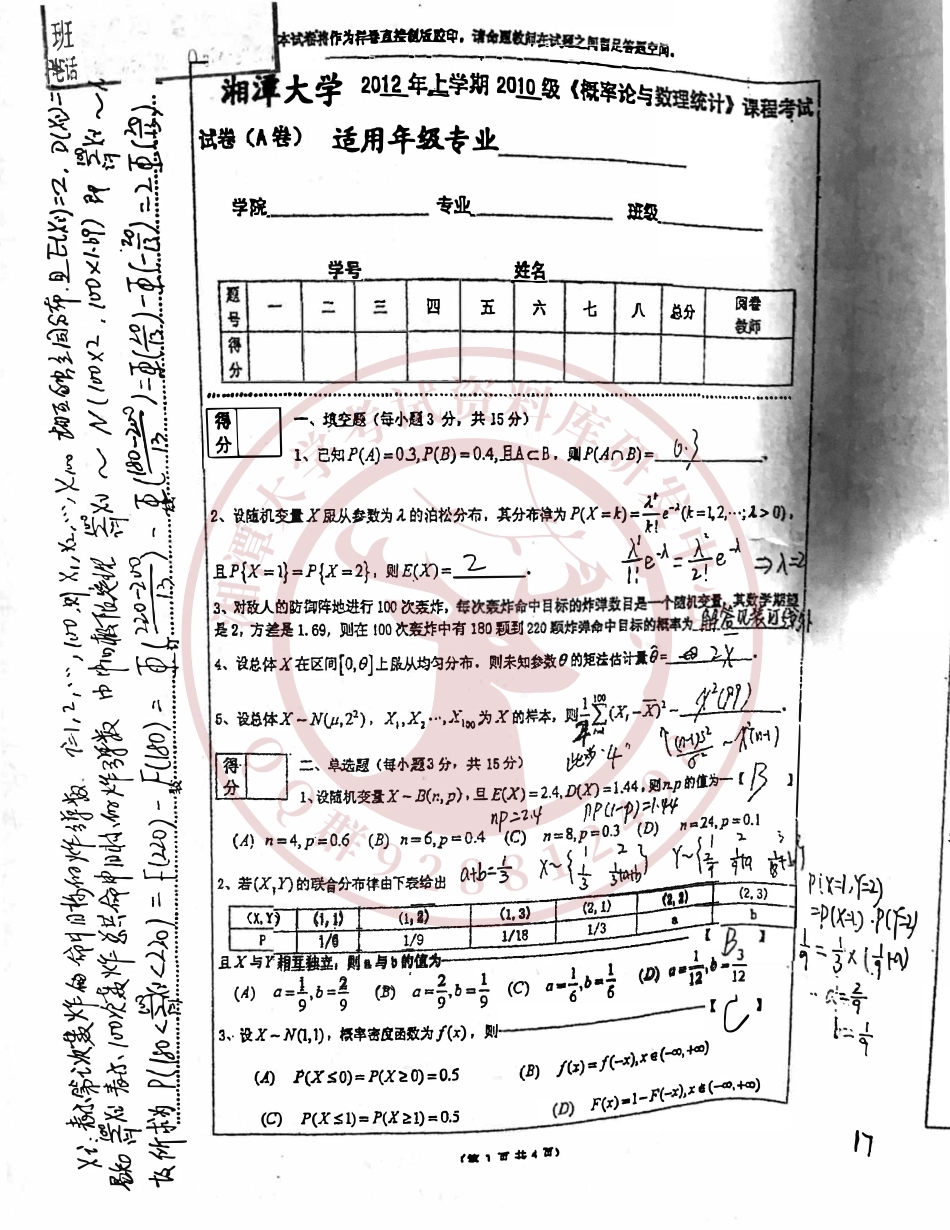 本试卷将作为样卷直接制版胶印，请命题教师在试题之间留足答题空间。
湘潭大学 2012年上学期2010级《概率论与数理统计》课程考试
试卷（A卷） 适用年级专业
学院 专业 班级
学号 姓名
题号 一 二 三 四 五 六 七 八 总分 阅卷教师
得分
得分
一、填空题（每小题3 分，共15分）
1、已知P(A)=0.3,P(B)=0.4,且A⊂B，则P(A∩B)= 0.3 .
2、设随机变量X服从参数为λ的泊松分布，其分布律为P(X=k)=λ^k/k! e^{-λ}(k=1,2,…;λ>0)，
且P{X=1}=P{X=2}，则E(X)= 2 .
λ^1/1! e^{-λ} = λ^2/2! e^{-λ} ⇒λ=2
3、对敌人的防御阵地进行100次轰炸，每次轰炸命中目标的炸弹数目是一个随机变量，其数学期望
是2，方差是1.69，则在100次轰炸中有180颗到220颗炸弹命中目标的概率为 解答见装订线外
4、设总体X在区间[0,θ]上服从均匀分布，则未知参数θ的矩法估计量θ̂= 2X̄ .
5、设总体X~N(μ,2²)，X₁,X₂…,X₁₀₀为X的样本，则1/4∑_{i=1}^{100}(X_i-X̄)²~ χ²(99) .
此步"4" ↑(n-1)S²/σ² ~χ²(n-1)
得分
二、单选题（每小题3分，共 15分）
1、设随机变量X~B(n,p)，且E(X)=2.4,D(X)=1.44，则n,p的值为【 B 】
np=2.4 np(1-p)=1.44
(A) n=4,p=0.6 (B) n=6,p=0.4 (C) n=8,p=0.3 (D) n=24,p=0.1
2、若(X,Y)的联合分布律由下表给出
a+b=1/3
(X,Y) (1,1) (1,2) (1,3) (2,1) (2,2) (2,3)
P 1/6 1/9 1/18 1/3 a b
且X与Y相互独立，则a与b的值为【 B 】
(A) a=1/9,b=2/9 (B) a=2/9,b=1/9 (C) a=1/6,b=1/6 (D) a=1/12,b=3/12
P(X=1,Y=2)
=P(X=1)·P(Y=2)
1/9=1/3×(1/9+a)
∴a=2/9
b=1/9
3、设X~N(1,1)，概率密度函数为f(x)，则【 C 】
(A) P(X≤0)=P(X≥0)=0.5 (B) f(x)=f(-x),x∈(-∞,+∞)
(C) P(X≤1)=P(X≥1)=0.5 (D) F(x)=1-F(-x),x∈(-∞,+∞)
（第 1 页 共 4 页）
17
Xi:表示第i次轰炸命中目标的炸弹数. i=1,2,…,100.则X₁,X₂,…,X₁₀₀相互独立同分布.且E(Xi)=2, D(Xi)=
表示100次轰炸总共命中目标的炸弹数 由中心极限定理 ∑Xi ~ N(100×2, 100×1.69) 即
故所求为 P(180<∑Xi<220) = F(220)-F(180) = Φ((220-200)/13) - Φ((180-200)/13) = Φ(20/13)-Φ(-20/13)=2Φ(20/13)
湘潭大学考试资料库研发中心